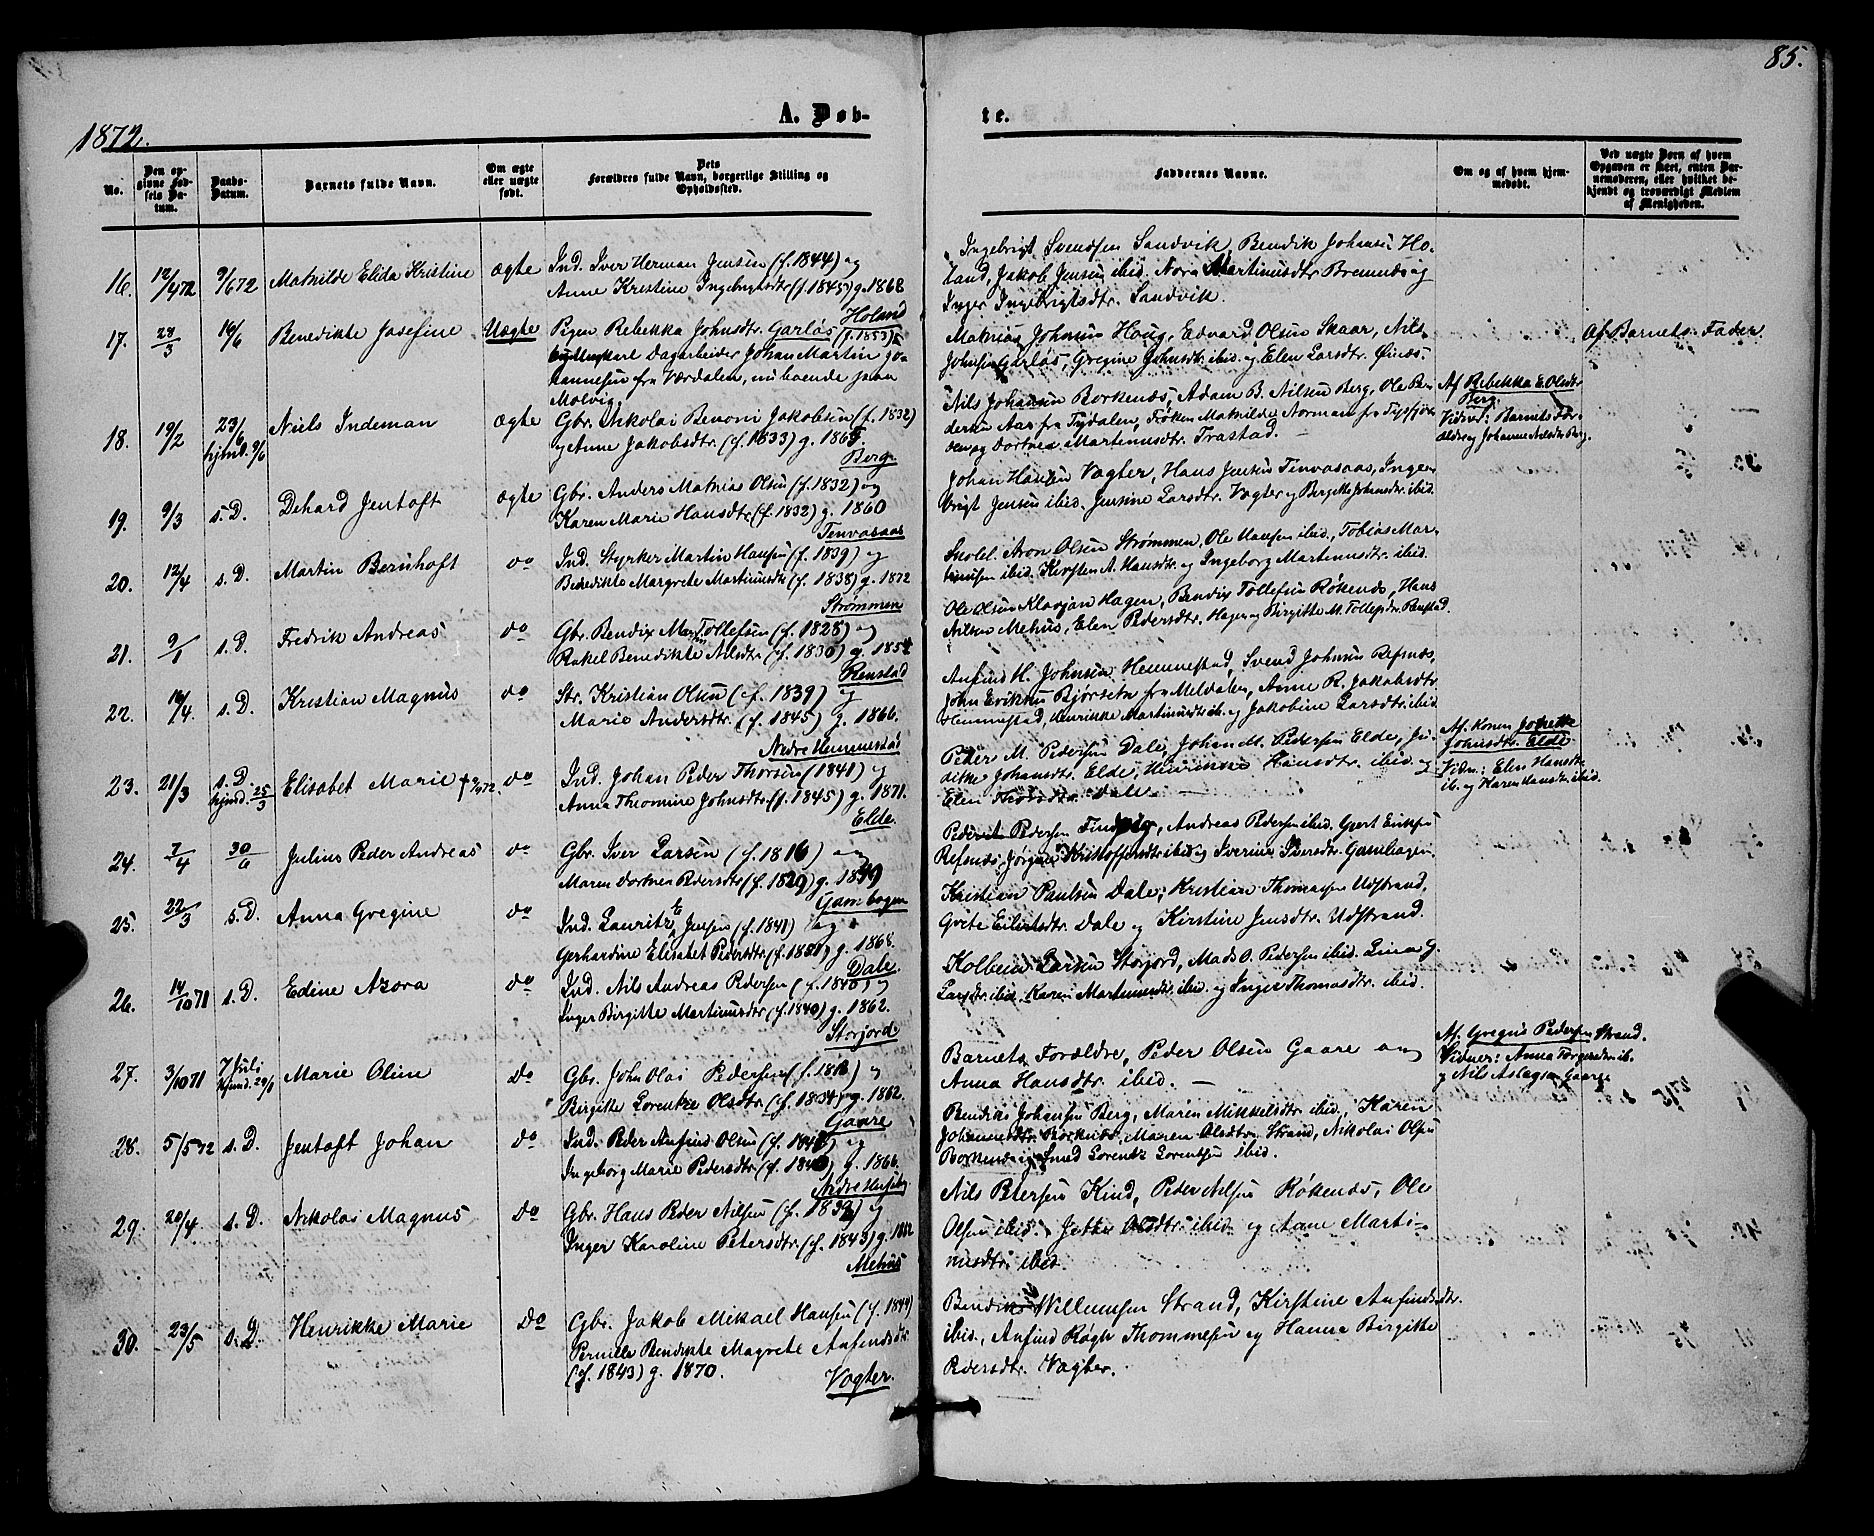 85.
A. Døb-
te.
1872.
No.
Den op-
givne Fød-
sels Da-
tum.
Daabs-
Datum.
Barnets fulde Navn.
Om ægte
eller uægte
født.
Dets
Forældres fulde Navn, borgerlige Stilling og
Opholdssted.
Faddernes Navne.
Om og af hvem hjem-
medøbt.
Ved uægte Børn af hvem
Opgaven er skeet, enten Bar-
nemoderen, eller hvilket be-
kjendt og troværdigt Medlem
af Menigheden.
16. 12/4 72 9/6 72 Mathilde Elida Kristine ægte Ind. Iver Herman Jensen (f. 1844) og
Anne Kristine Ingebrigtsdtr (f. 1845) g. 1868
Holand
Ingebrigt Svendsen Sandvik, Bendik Johansen Ho-
land, Jakob Jensen ibid. Nora Martinusdtr Bremnes og
Inger Ingebrigtsdtr. Sandvik.
17. 28/3 16/6 Benedikte Josefine Uægte Pigen Rebekka Johnsdtr. Garløs (f. 1853) &
Dagarbeider Johan Martin Jo-
hannesen fra Værdalen, nu boende paa
Molvig.
Mathias Johnsen Haug, Edvard Olsen Skaar, Nils
Johnsen Garløs, Gregine Johnsdtr. ibid. og Elen Larsdtr. Øinæs.
Af Barnets Fader.
18. 19/2 23/6 hjmd. 9/6 Niels Indeman ægte Gbr. Nikolai Benoni Jakobsen (f. 1832)
og Anne Jakobsdtr. (f. 1833) g. 1865.
Berg.
Nils Johansen Borkenæs, Adam B. Nilsen Berg, Ole Pe-
dersen Aas fra Tydalen, Frøken Mathilde Norman fra Tysfjor-
den og Dorthea Martinusdtr. Trastad. —
Af Rebekka E. Olsdtr
Berg.
Vidner: Barnets For-
ældre og Johanne Nilsdtr Berg.
19. 9/3 s. D. Dehard Jentoft ægte Gbr. Anders Mathias Olsen (f. 1832) og
Karen Marie Hansdtr (f. 1832) g. 1860
Tenvasaas
Johan Hansen Vagter, Hans Jensen Tenvasaas, Inge-
brigt Jensen ibid. Jensine Larsdtr. Vagter og Bergitte Johansdtr. ibid.
20. 12/4 s. D. Martin Bernhoft do Ind. Styrker Martin Hansen (f. 1839) og
Benedikte Margrete Martinusdtr (f. 1838) g. 1872
Strømmen
Skolel. Aron Olsen Strømmen, Ole Hansen ibid., Tobias Mar-
tinusen ibid. Kirsten A. Hansdtr. og Ingeborg Martinusdtr. ibid.
21. 9/1 s. D. Fredrik Andreas do Gbr. Bendix Tollefsen (f. 1828) og
Rakel Benedikte Nilsdtr (f. 1830) g. 1854
Renstad
Ole Olsen Klaasjan Hagen, Bendix Tollefsen Røkenæs, Hans
Nilsen Mehus, Elen Pedersdtr. Hagen og Birgitte M. Tollefsdtr Renstad.
22. 16/4. s. D. Kristian Magnus do Str. Kristian Olsen (f. 1839) og
Marie Andersdtr. (f. 1845) g. 1866.
Nedre Hemmestad
Anfind H. Johnsen Hemmestad, Svend Johnsen Refsnæs,
John Eriksen Bjørseth fra Meldalen, Anne R. Jakobsdtr
Hemmestad, Henrikke Martinusdtr ib. og Jakobine Larsdtr. ibid.
23. 21/3 s. D. hjmd. 25/3 Elisabet Marie † 9/7 72. do Ind. Johan Peder Thorsen (1841) og
Anna Theomine Johnsdtr. (f. 1845) g. 1871.
Elde.
Peder M. Pedersen Dale, Johan M. Pedersen Elde, Ju-
ditte Johansdtr. Elde, Henrikke Hansdtr. ibid. og
Elen Thorsdtr. Dale —
Af Konen
Johnsdtr. Elde
Vidn: Elen Hansdtr.
ib. og Karen Hansdtr. ibid.
24. 7/4 30/6 Julius Peder Andreas do Gbr. Iver Larsen (f. 1816) og
Maren Dorthea Pedersdtr (f. 1829) g. 1849
Gamhagen
Pedersen Finvig, Andreas Pedersen ibid. Gjert Eriksen
Refsnæs, Jørgine Kristoffersdtr. ibid og Iverine Iversdtr. Gamhagen.
25. 22/3 s. D. Anna Gregine do Ind. Lauritz E Jensen (f. 1841) og
Gerhardine Elisabet Pedersdtr. (f. 1851) g. 1868.
Dale.
Kristian Paulsen Dale, Kristian Thomassen Udstrand,
Grete Eilertsdtr Dale og Kirstine Jensdtr. Udstrand.
26. 14/10 71 s. D. Edine Azora do Ind. Nils Andreas Pedersen (f. 1840) og
Inger Birgitte Martinusdtr (f. 1840) g. 1862.
Storjord
Kolbein Larsen Storjord, Mads O. Pedersen ibid. Lina G.
Larsdtr. ibid. Karen Martinusdtr. ibid. og Inger Thomasdtr. ibid.
27. 3/10 71 7 Juli hjmd. 29/1 Marie Oline do Gbr. John Olai Pedersen (f. 1816) og
Birgitte Lorentze Olsdtr. (f. 1834) g. 1862.
Gaare
Barnets Forældre, Peder Olsen Gaare og
Anna Hansdtr. ibid. —
Af. Gregus Pedersen Strand.
Vidner: Anna Jørgensdtr ib.
og Nils Aslagsen Gaare
28. 5/5 72 s. D. Jentoft Johan do Ind. Peder Anfind Olsen (f. 1841) og
Ingeborg Marie Pedersdtr. (f. 1840) g. 1866.
Bendik Johansen Berg, Maren Mikkelsdtr ibid., Karen
Johannesdtr. Borkenæs, Maren Olsdtr. Strand, Nikolai Olsen
Borkenæs og Smed Lorentz Lorentsen ibid.
29. 20/4 s. D. Nikolai Magnus do Gbr. Hans Peder Nilsen (f. 1832) og
Inger Karoline Petersdtr. (f. 1843) g. 1862
Mehus
Nils Petersen Kind, Peder Nilsen Røkenæs, Ole
Olsen ibid., Jette Olsdtr. ibid. og Anne Marti-
nusdtr. ibid.
30. 23/5 s. D. Henrikke Marie do Gbr. Jakob Mikael Hansen (f. 1844)
Pernille Bendikte Magrete Anfindsdtr.
(f. 1843) g. 1870.
Vagter.
Bendix Willumsen Strand, Kirstine Anfindsdtr.
ibid., Anfind Røgh Thommesen og Hanna Birgitte
Pedersdtr. Vagter.